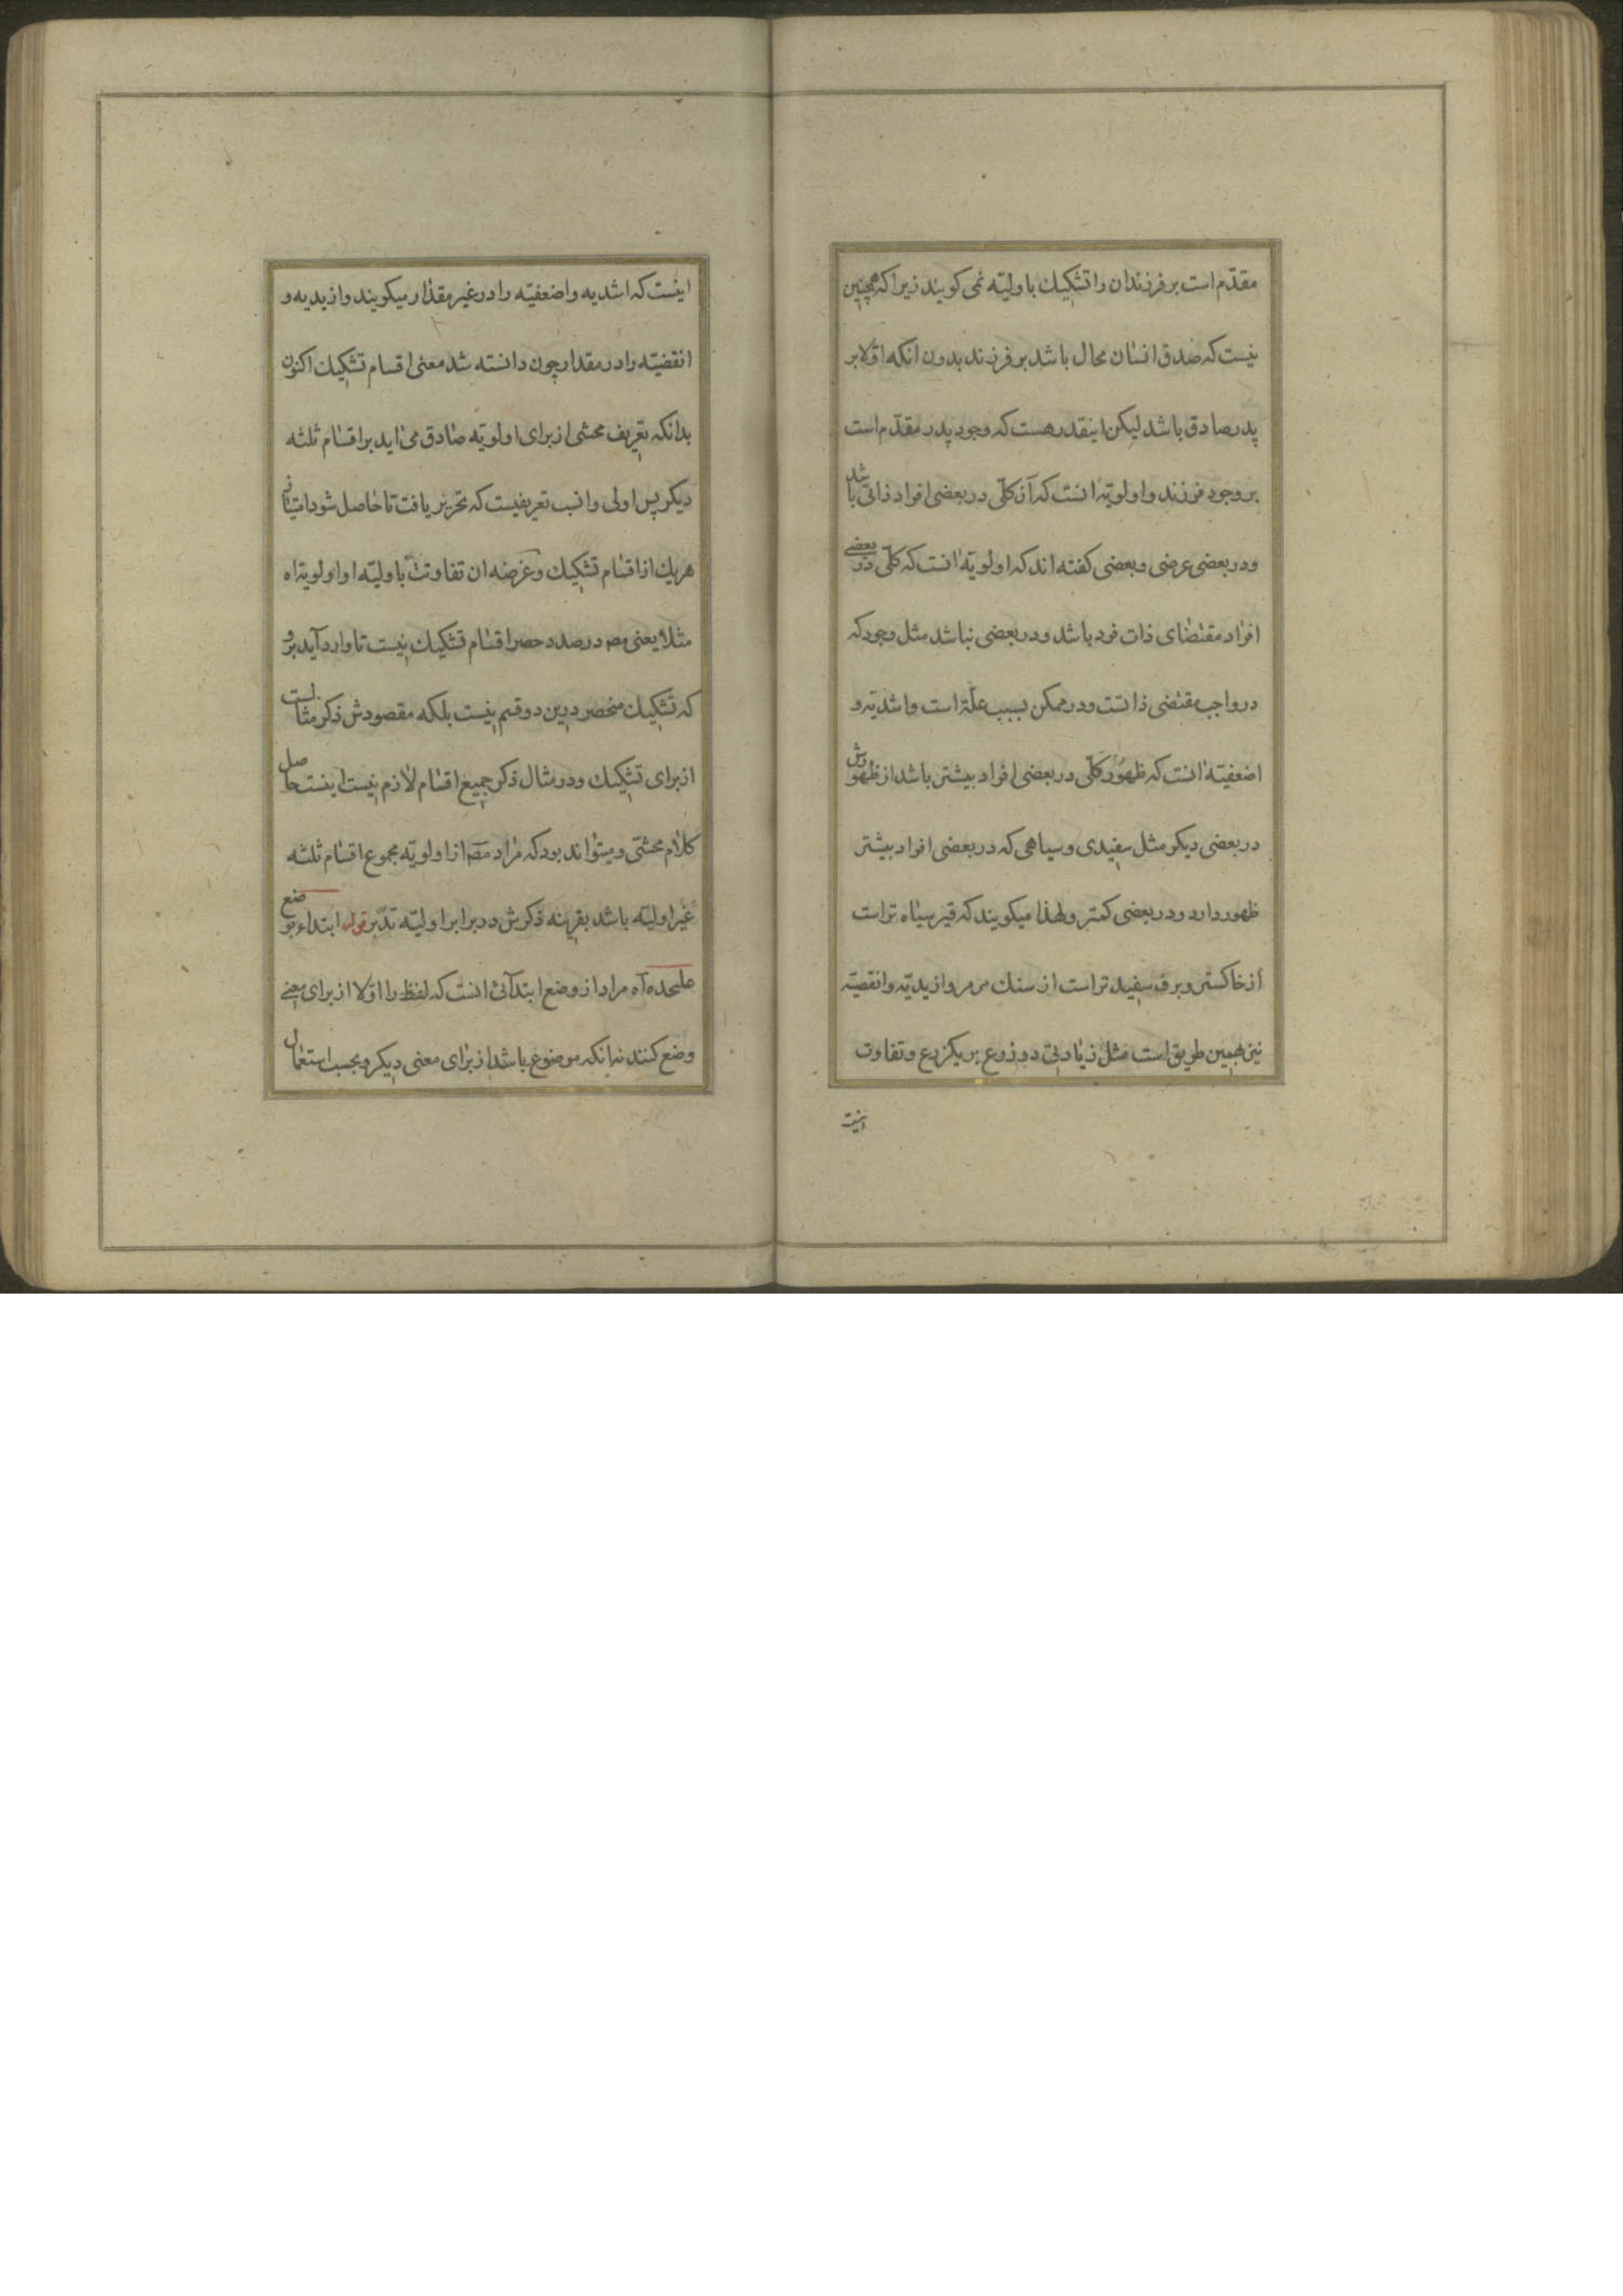 مقدّم است بر فرزندان را تشکیك باولیّه نمی کویند زیرا که همچنین
نیست که صدق انسان محال باشد بر فرزند بدون انکه اوّلا بر
پدر صادق باشد لیکن اینقدر هست که وجود پدر مقدّم است
بر وجود فرزند و اولویّه انست که آن کلّی در بعضی افراد ذاتی باشد
و در بعضی عرضی و بعضی کفته اند که اولویّه انست که کلّی در بعضی
افراد مقتضای ذات فرد باشد و در بعضی نباشد مثل وجود که
در واجب مقتضی ذاتست و در ممکن بسبب علّة است و اشدیّه و
اضعفیّه انست که ظهور کلّی در بعضی افراد بیشتر باشد از ظهورش
در بعضی دیکر مثل سفیدی و سیاهی که در بعضی افراد بیشتر
ظهور دارد و در بعضی کمتر و لهذا میکویند که قیر سیاه تر است
از خاکستر و برف سفید تر است از سنك مرمر و ازیدیّه و انقصیّه
نیز بهمین طریق است مثل زیادتی دو ذرع بر یکزرع و تفاوت
اینست
اینست که اشدیه و اضعفیّه را در غیر مقدار میکویند و ازیدیه و
انقضیّه را در مقدار چون دانسته شد معنی اقسام تشکیك اکنون
بدانکه تعریف محشی از برای اولویّه صادق می اید بر اقسام ثلثه
دیکر پس اولی و انسب تعریفیست که تحریر یافت تا حاصل شود امتیاز
هریك از اقسام تشکیك و غرضه ان تفاوت باولیّه او اولویة اه
مثلا یعنی مصـ در صدد حصر اقسام تشکیك نیست تا وارد آید برو
که تشکیك منحصر درین دو قسم نیست بلکه مقصودش ذکر مثالیست
از برای تشکیك و در مثال ذکر جمیع اقسام لازم نیست اینست حاصل
کلام محشّی و میتواند بود که مراد مصـ از اولویّه مجموع اقسام ثلثه
غیر اولیّه باشد بقرینه ذکرش در برابر اولیّه تدبّر قوله ابتداء بوضع
علیحده آه مراد از وضع ابتدآئ انست که لفظ را اوّلا از برای معنی
وضع کنند نه انکه موضوع باشد از برای معنی دیکر و بحسب استعمال